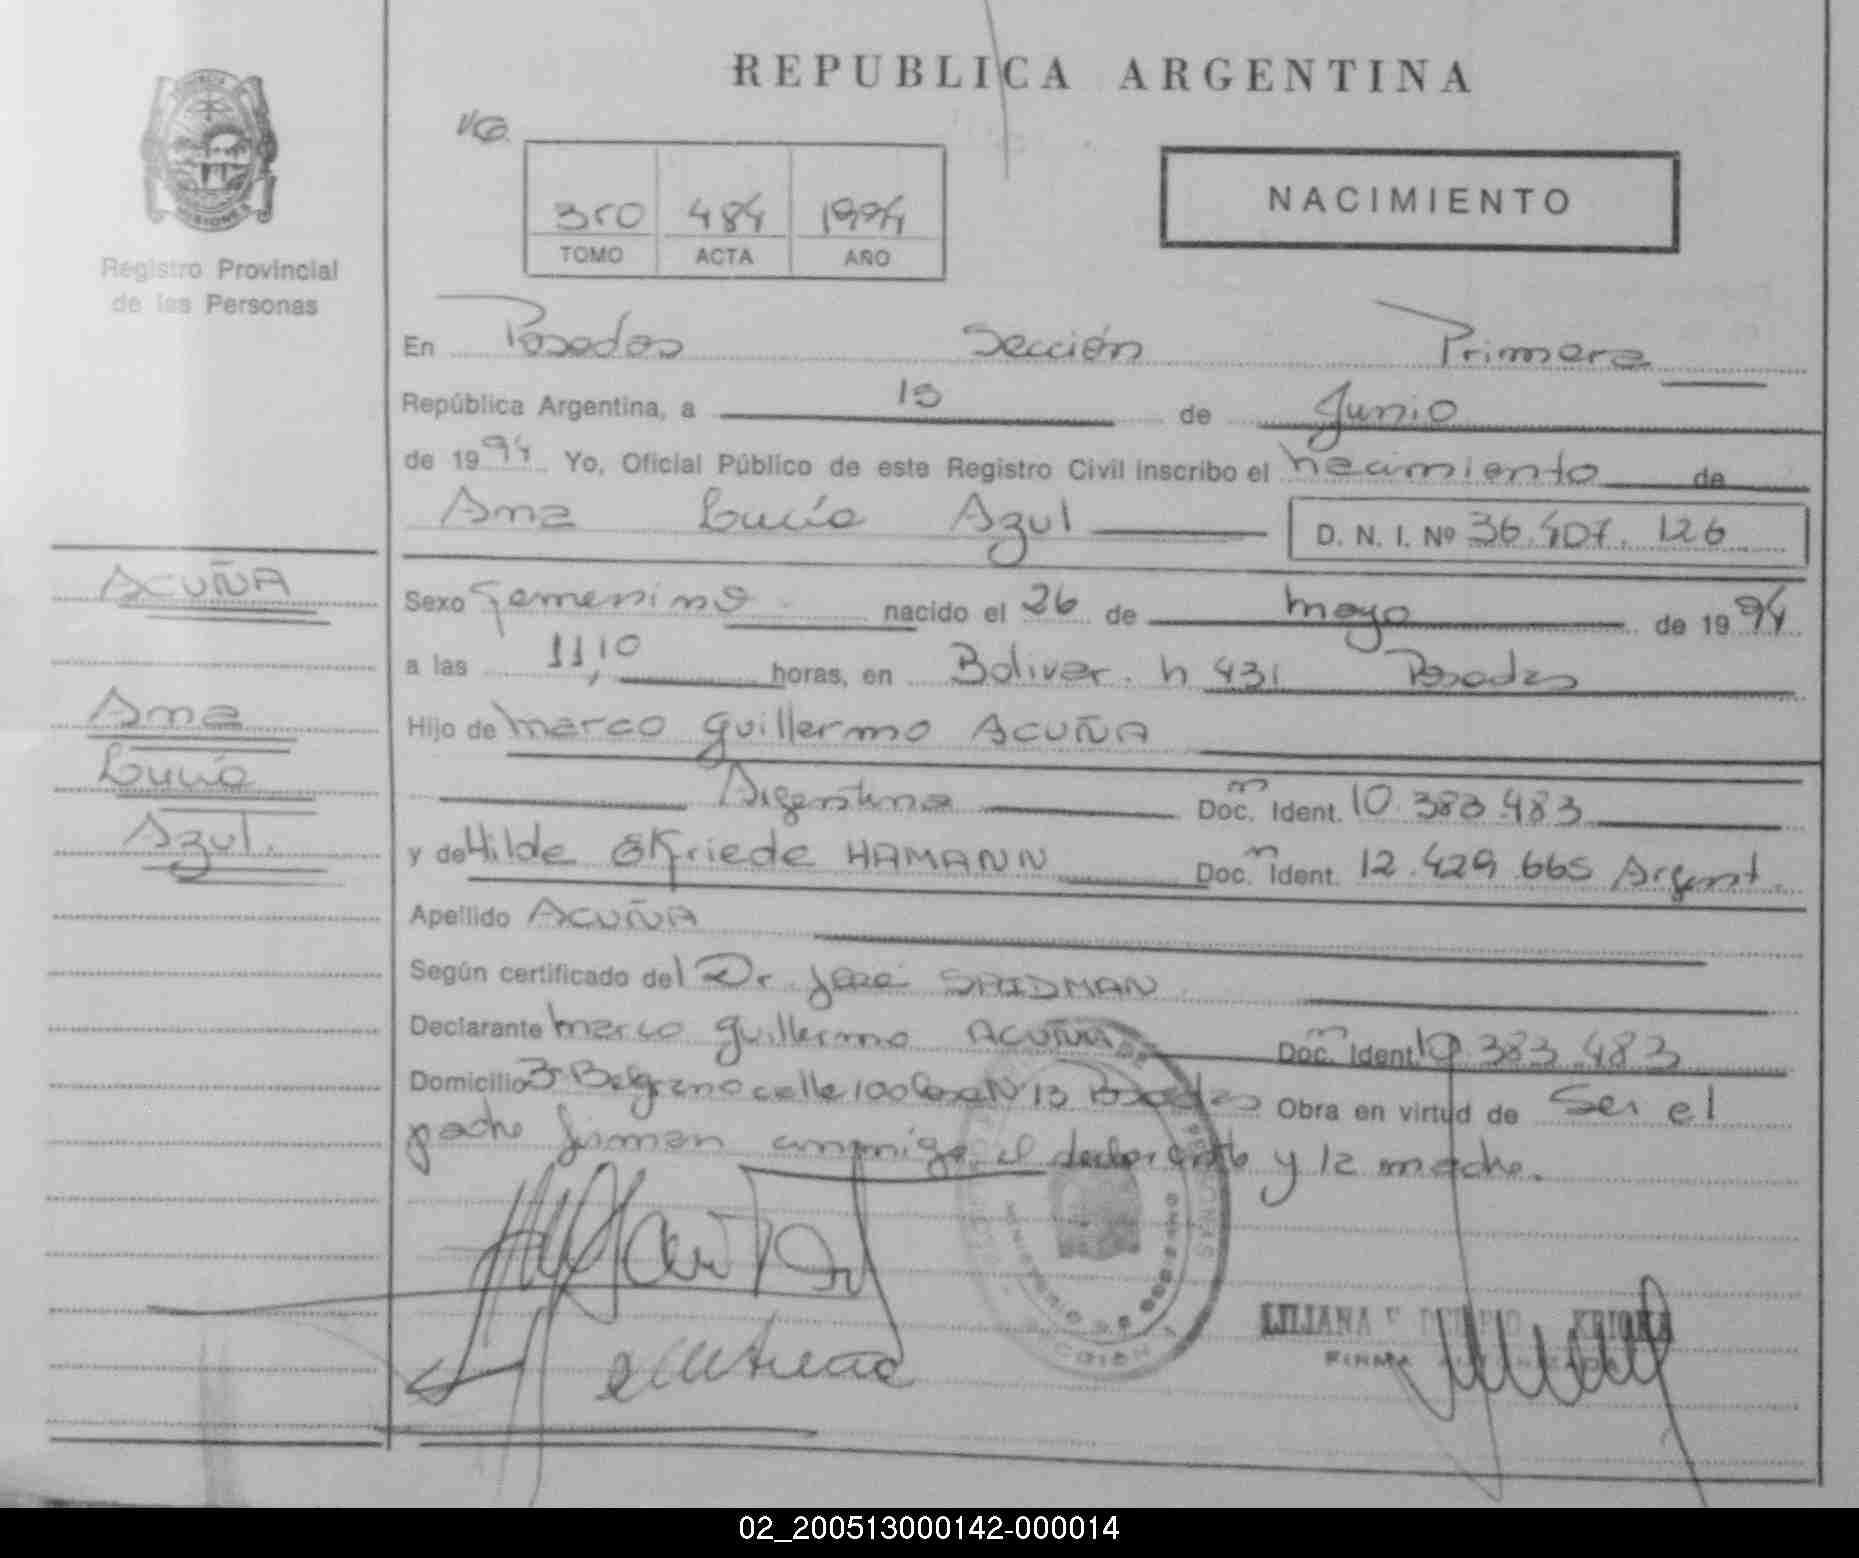 REPUBLICA ARGENTINA
MISIONES
Registro Provincial
de las Personas
350 484 1994
TOMO ACTA AÑO
NACIMIENTO
En Posadas Sección Primera
República Argentina, a 15 de Junio
de 1994 Yo, Oficial Público de este Registro Civil inscribo el nacimiento de
Ana Lucía Azul D. N. I. Nº 36.407.126
ACUÑA
Ana
Lucía
Azul.
Sexo Femenino nacido el 26 de mayo de 1994
a las 11,10 horas, en Bolivar. n 431 Posadas
Hijo de Marco Guillermo ACUÑA
Argentina Doc. Ident. 10.383.483
y de Hilde HAMANN Doc. Ident. 12.429.665 Argent.
Apellido ACUÑA
Según certificado del Dr. José
Declarante Marco Guillermo ACUÑA Doc. Ident. 10.383.483
Domicilio Belgrano calle 100 Casa N 13 Posadas Obra en virtud de Ser el
padre firman conmigo el declarante y la madre.
MINISTERIO DE GOBIERNO
LILIANA
FIRMA
02_200513000142-000014